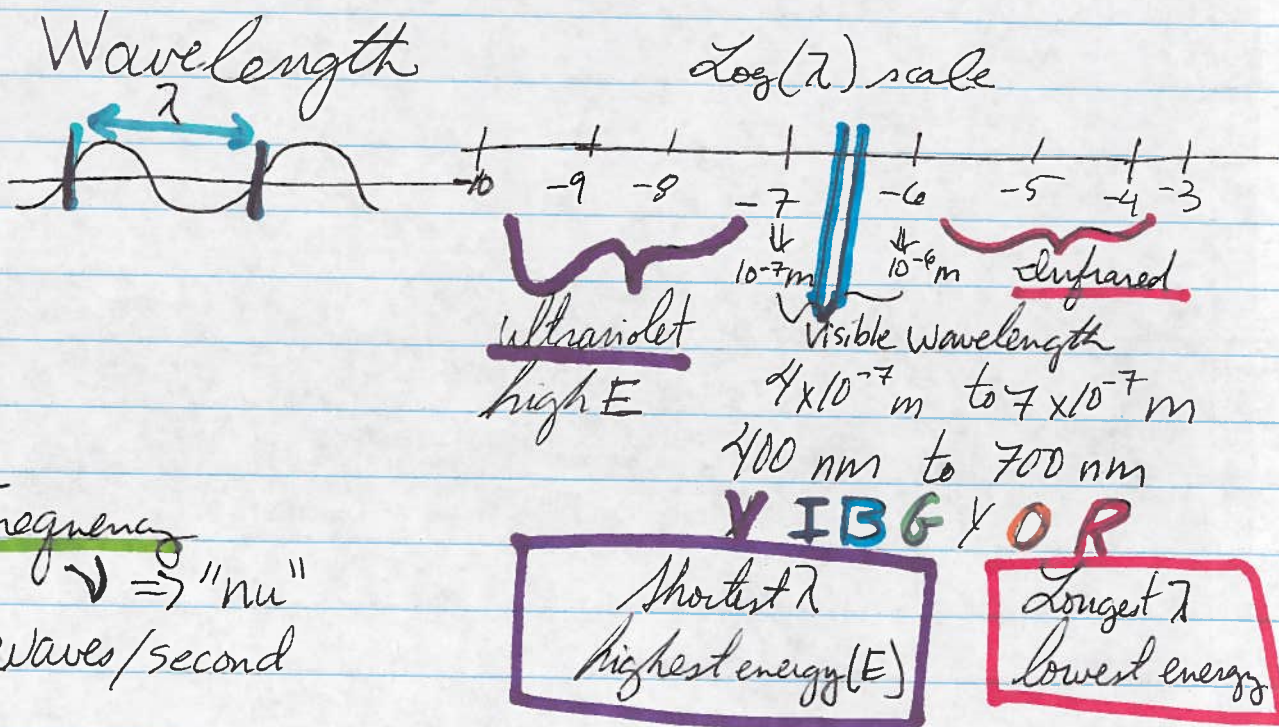 Wavelength
λ
Log(λ) scale
-10 -9 -8 -7 -6 -5 -4 -3
⇓ ⇓
10⁻⁷m 10⁻⁶m
Infrared
ultraviolet
high E
Visible Wavelength
4x10⁻⁷ m to 7x10⁻⁷ m
400 nm to 700 nm
V I B G Y O R
requency
ν => "nu"
waves/second
Shortest λ
highest energy (E)
Longest λ
lowest energy